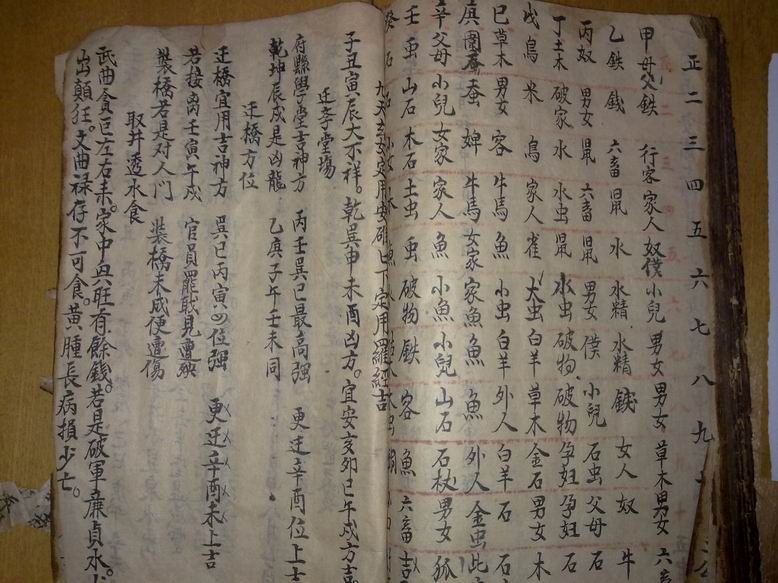 正 二 三 四 五 六 七 八 九
甲 母父 鉄 行客 家人 奴僕 小兒 男女 男女 草木 男女 六畜
乙 鉄 錢 六畜 鼠 水 水精 水精 鉄 女人 奴 牛
丙 奴 男女 鼠 六畜 鼠 男女 僕 小兒 石虫 父母 石
丁 土木 破家 水 水虫 鼠 水虫 破物 破物 孕妇 孕妇 石
戊 鳥 米 鳥 家人 雀 犬虫 白羊 草木 金石 男女 木
巳 草木 男女 客 牛馬 魚 小虫 白羊 外人 白羊 石 石
蚕 婢 牛馬 女家 家魚 魚 魚 外人 金虫 此
辛 父母 小兒 女家 家人 魚 小魚 小兒 山石 石杖 男女 狐
壬 虫 山石 木石 土虫 虫 破物 鉄 客 魚 六畜 吉
九天玄女定用安砕七下定用羅經吉
子丑寅辰大不祥。乾巽申未酉凶方。宜安亥卯巳午戍方吉。
迁李堂場
府縣學堂吉神方 丙壬巽巳最高强 更迁辛酉位上吉
乾坤辰戍是凶龍 乙庚子午壬未同
迁橋方位
迁橋宜用吉神方 巽巳丙寅四位强 更迁辛酉未上吉
若接凶壬寅午戍 官員罷戝見遭殃
裝橋若是对人門 裝橋未成便遭傷
取井透水食
武曲貪巨左右来。家中興旺有餘錢。若是破軍廉貞水。
出顛狂。文曲禄存不可食。黄腫長病損少亡。